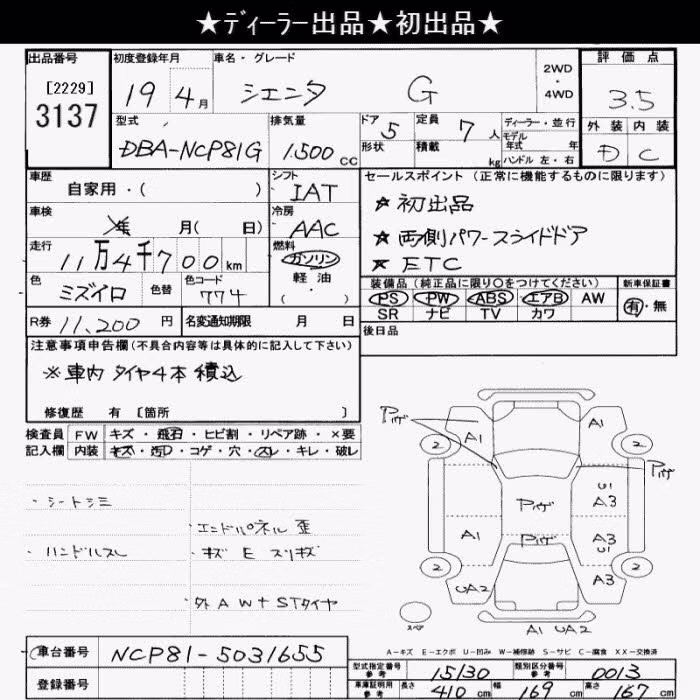 ★ディーラー出品★初出品★
出品番号
[2229]
3137
初度登録年月
19年4月
車名・グレード
シエンタ G
2WD
・
4WD
評価点
3.5
外装 内装
D C
型式
DBA-NCP81G
排気量
1500cc
ドア 5
形状
定員 7人
積載 kg
ディーラー・並行
モデル年式 年
ハンドル 左・右
車歴
自家用・( )
シフト
IAT
車検
年 月( 日)
冷房
AAC
走行
11万4千700km
燃料
ガソリン
軽油
・( )
色
ミズイロ
色替
色コード
774
R券 11,200円
名変通知期限 月 日
セールスポイント(正常に機能するものに限ります)
★ 初出品
★ 両側パワースライドドア
★ ETC
装備品(純正品に限り○をつけてください)
PS・PW・ABS・エアB・AW
SR・ナビ・TV・カワ
新車保証書
有・無
後日品
注意事項申告欄(不具合内容等は具体的に記入して下さい)
※車内 タイヤ4本 積込
修復歴 有 〔箇所 〕
検査員記入欄
FW キズ・飛石・ヒビ割・リペア跡・×要
内装 キズ・汚レ・コゲ・穴・スレ・キレ・破レ
・シートシミ
・ハンドルスレ
・エンドパネル 歪
・キズ E スリキズ
・外AW+STタイヤ
アハゲ
A1
A1
2
2
アハゲ
アハゲ
アハゲ
U1
A3
A3
U1
A3
A1
UA2
2
2
スペア
A1 UA2
A−キズ E−エクボ U−凹み W−補修跡 S−サビ C−腐食 XX−交換済
車台番号 NCP81-5031655
登録番号
型式指定番号 参考 15130
類別区分番号 参考 0013
車庫証明用 参考 長さ 410cm 幅 169cm 高さ 167cm